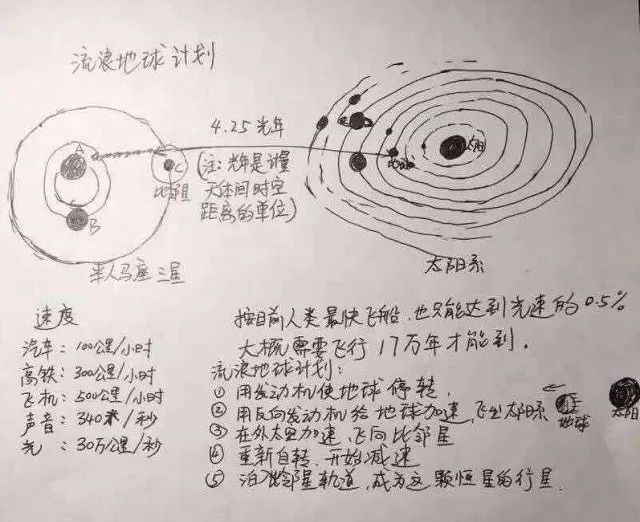 流浪地球计划
4.25光年
(注:光年是计量
天体间时空
距离的单位)
A
B
C
比邻星
半人马座三星
地球
太阳
太阳系
速度
汽车:100公里/小时
高铁:300公里/小时
飞机:500公里/小时
声音:340米/秒
光:30万公里/秒
按目前人类最快飞船,也只能达到光速的0.5%
大概需要飞行17万年才能到.
流浪地球计划:
① 用发动机使地球停转,
② 用反向发动机给地球加速,飞出太阳系
③ 在外太空加速,飞向比邻星
④ 重新自转,开始减速
⑤ 泊入比邻星轨道,成为这颗恒星的行星.
地球
太阳